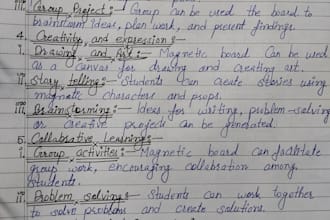 iii. Group Project :- Group can be used the board to
brainstorm ideas, plan work, and present findings.
4. Creativity and expression :-
i. Drawing and Art :- Magnetic board can be used
as a canvas for drawing and creating art.
ii. Story telling :- Students can create stories using
magnetic characters and props.
iii. Brainstorming :- Ideas for writing, problem-solving
or creative project can be generated.
5. Collaborative Learning :-
i. Group activities :- Magnetic board can facilitate
group work, encouraging collabration among
students.
ii. Problem solving :- Students can work together
to solve problems and create solutions.